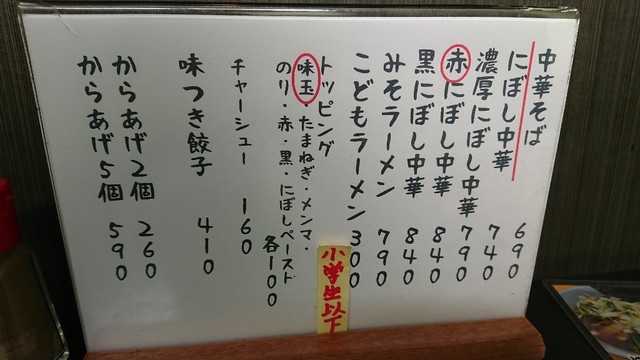 中華そば 690
にぼし中華 740
濃厚にぼし中華 790
赤にぼし中華 840
黒にぼし中華 840
みそラーメン 790
こどもラーメン 300
小学生以下
トッピング
味玉・たまねぎ・メンマ・
のり・赤・黒・にぼしペースト
各100
チャーシュー 160
味つき餃子 410
からあげ2個 260
からあげ5個 590